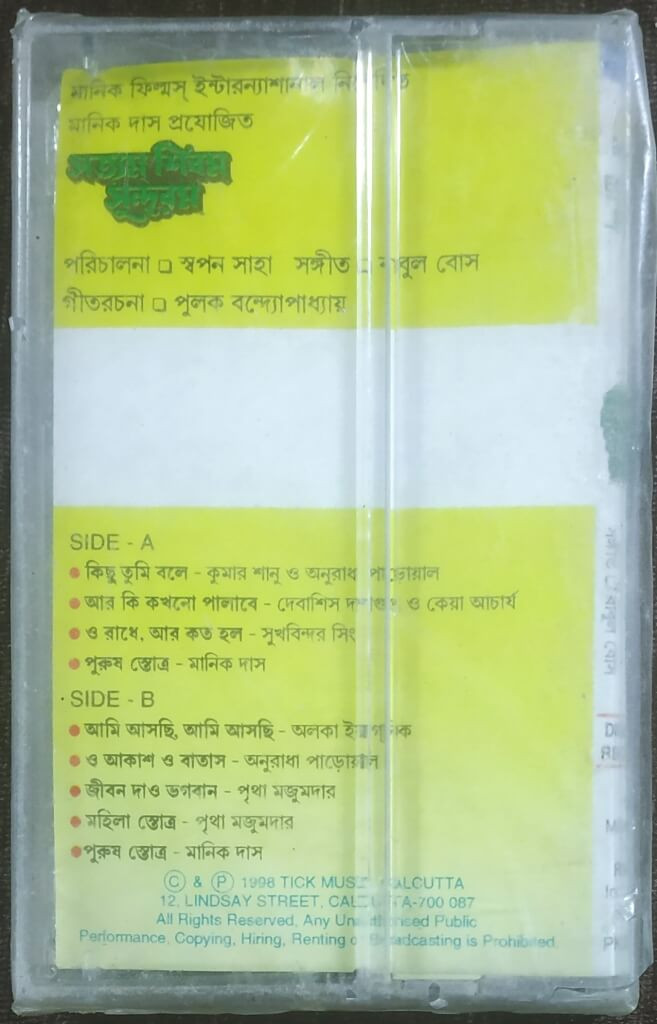 মানিক ফিল্মস্ ইন্টারন্যাশানাল নিবেদিত
মানিক দাস প্রযোজিত
সত্যম শিবম
সুন্দরম
পরিচালনা □ স্বপন সাহা সঙ্গীত □ বাবুল বোস
গীতরচনা □ পুলক বন্দ্যোপাধ্যায়
SIDE - A
• কিছু তুমি বলে - কুমার শানু ও অনুরাধা পাড়োয়াল
• আর কি কখনো পালাবে - দেবাশিস দাশগুপ্ত ও কেয়া আচার্য
• ও রাধে, আর কত হল - সুখবিন্দর সিং
• পুরুষ স্তোত্র - মানিক দাস
SIDE - B
• আমি আসছি, আমি আসছি - অলকা ইয়াগ্নিক
• ও আকাশ ও বাতাস - অনুরাধা পাড়োয়াল
• জীবন দাও ভগবান - পৃথা মজুমদার
• মহিলা স্তোত্র - পৃথা মজুমদার
• পুরুষ স্তোত্র - মানিক দাস
© & ℗ 1998 TICK MUSIC CALCUTTA
12, LINDSAY STREET, CALCUTTA-700 087
All Rights Reserved, Any Unauthorised Public
Performance, Copying, Hiring, Renting or Broadcasting is Prohibited